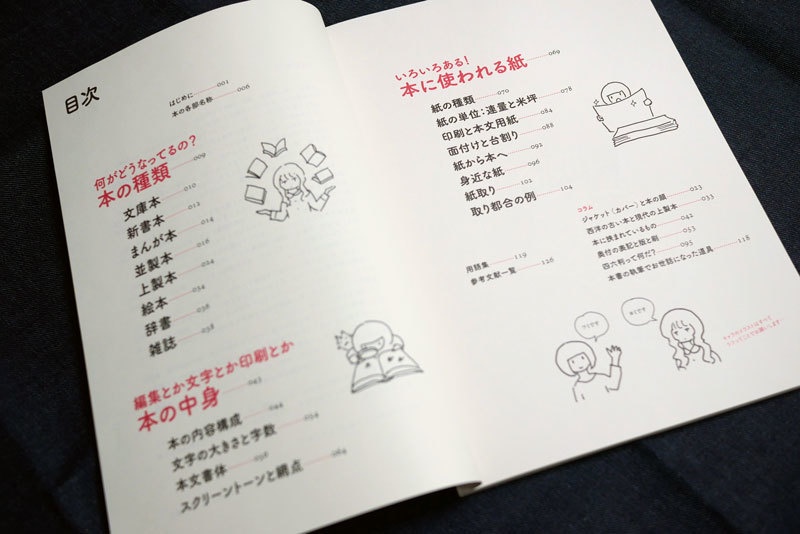 目次
はじめに 001
本の各部名称 006
何がどうなってるの？
本の種類 009
文庫本 010
新書本 012
まんが本 014
並製本 016
上製本 024
絵本 034
辞書 036
雑誌 038
編集とか文字とか印刷とか
本の中身 043
本の内容構成 044
文字の大きさと字数 054
本文書体 056
スクリーントーンと網点 064
いろいろある！
本に使われる紙 069
紙の種類 070
紙の単位：連量と米坪 078
印刷と本文用紙 084
面付けと台割り 088
紙から本へ 092
身近な紙 096
紙取り 102
取り都合の例 104
用語集 119
参考文献一覧 126
コラム
ジャケット（カバー）と本の顔 023
西洋の古い本と現代の上製本 033
本に挟まれているもの 042
奥付の表記と版と刷 053
四六判って何だ？ 095
本書の執筆でお世話になった道具 118